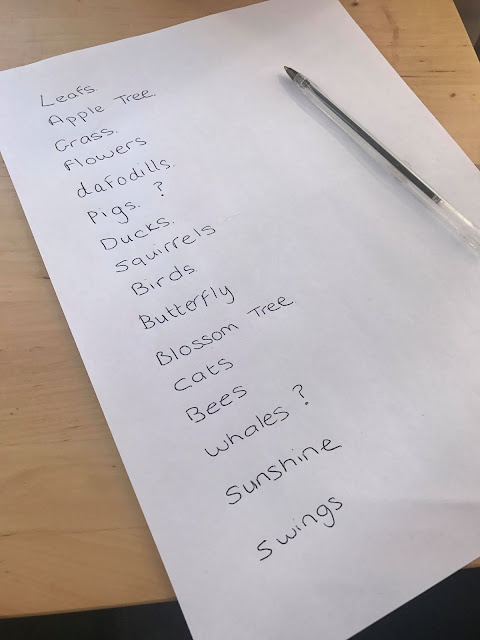 Leafs.
Apple Tree.
Grass.
flowers
dafodills.
Pigs. ?
Ducks.
squirrels
Birds
Butterfly
Blossom Tree.
cats
Bees
whales ?
sunshine
swings